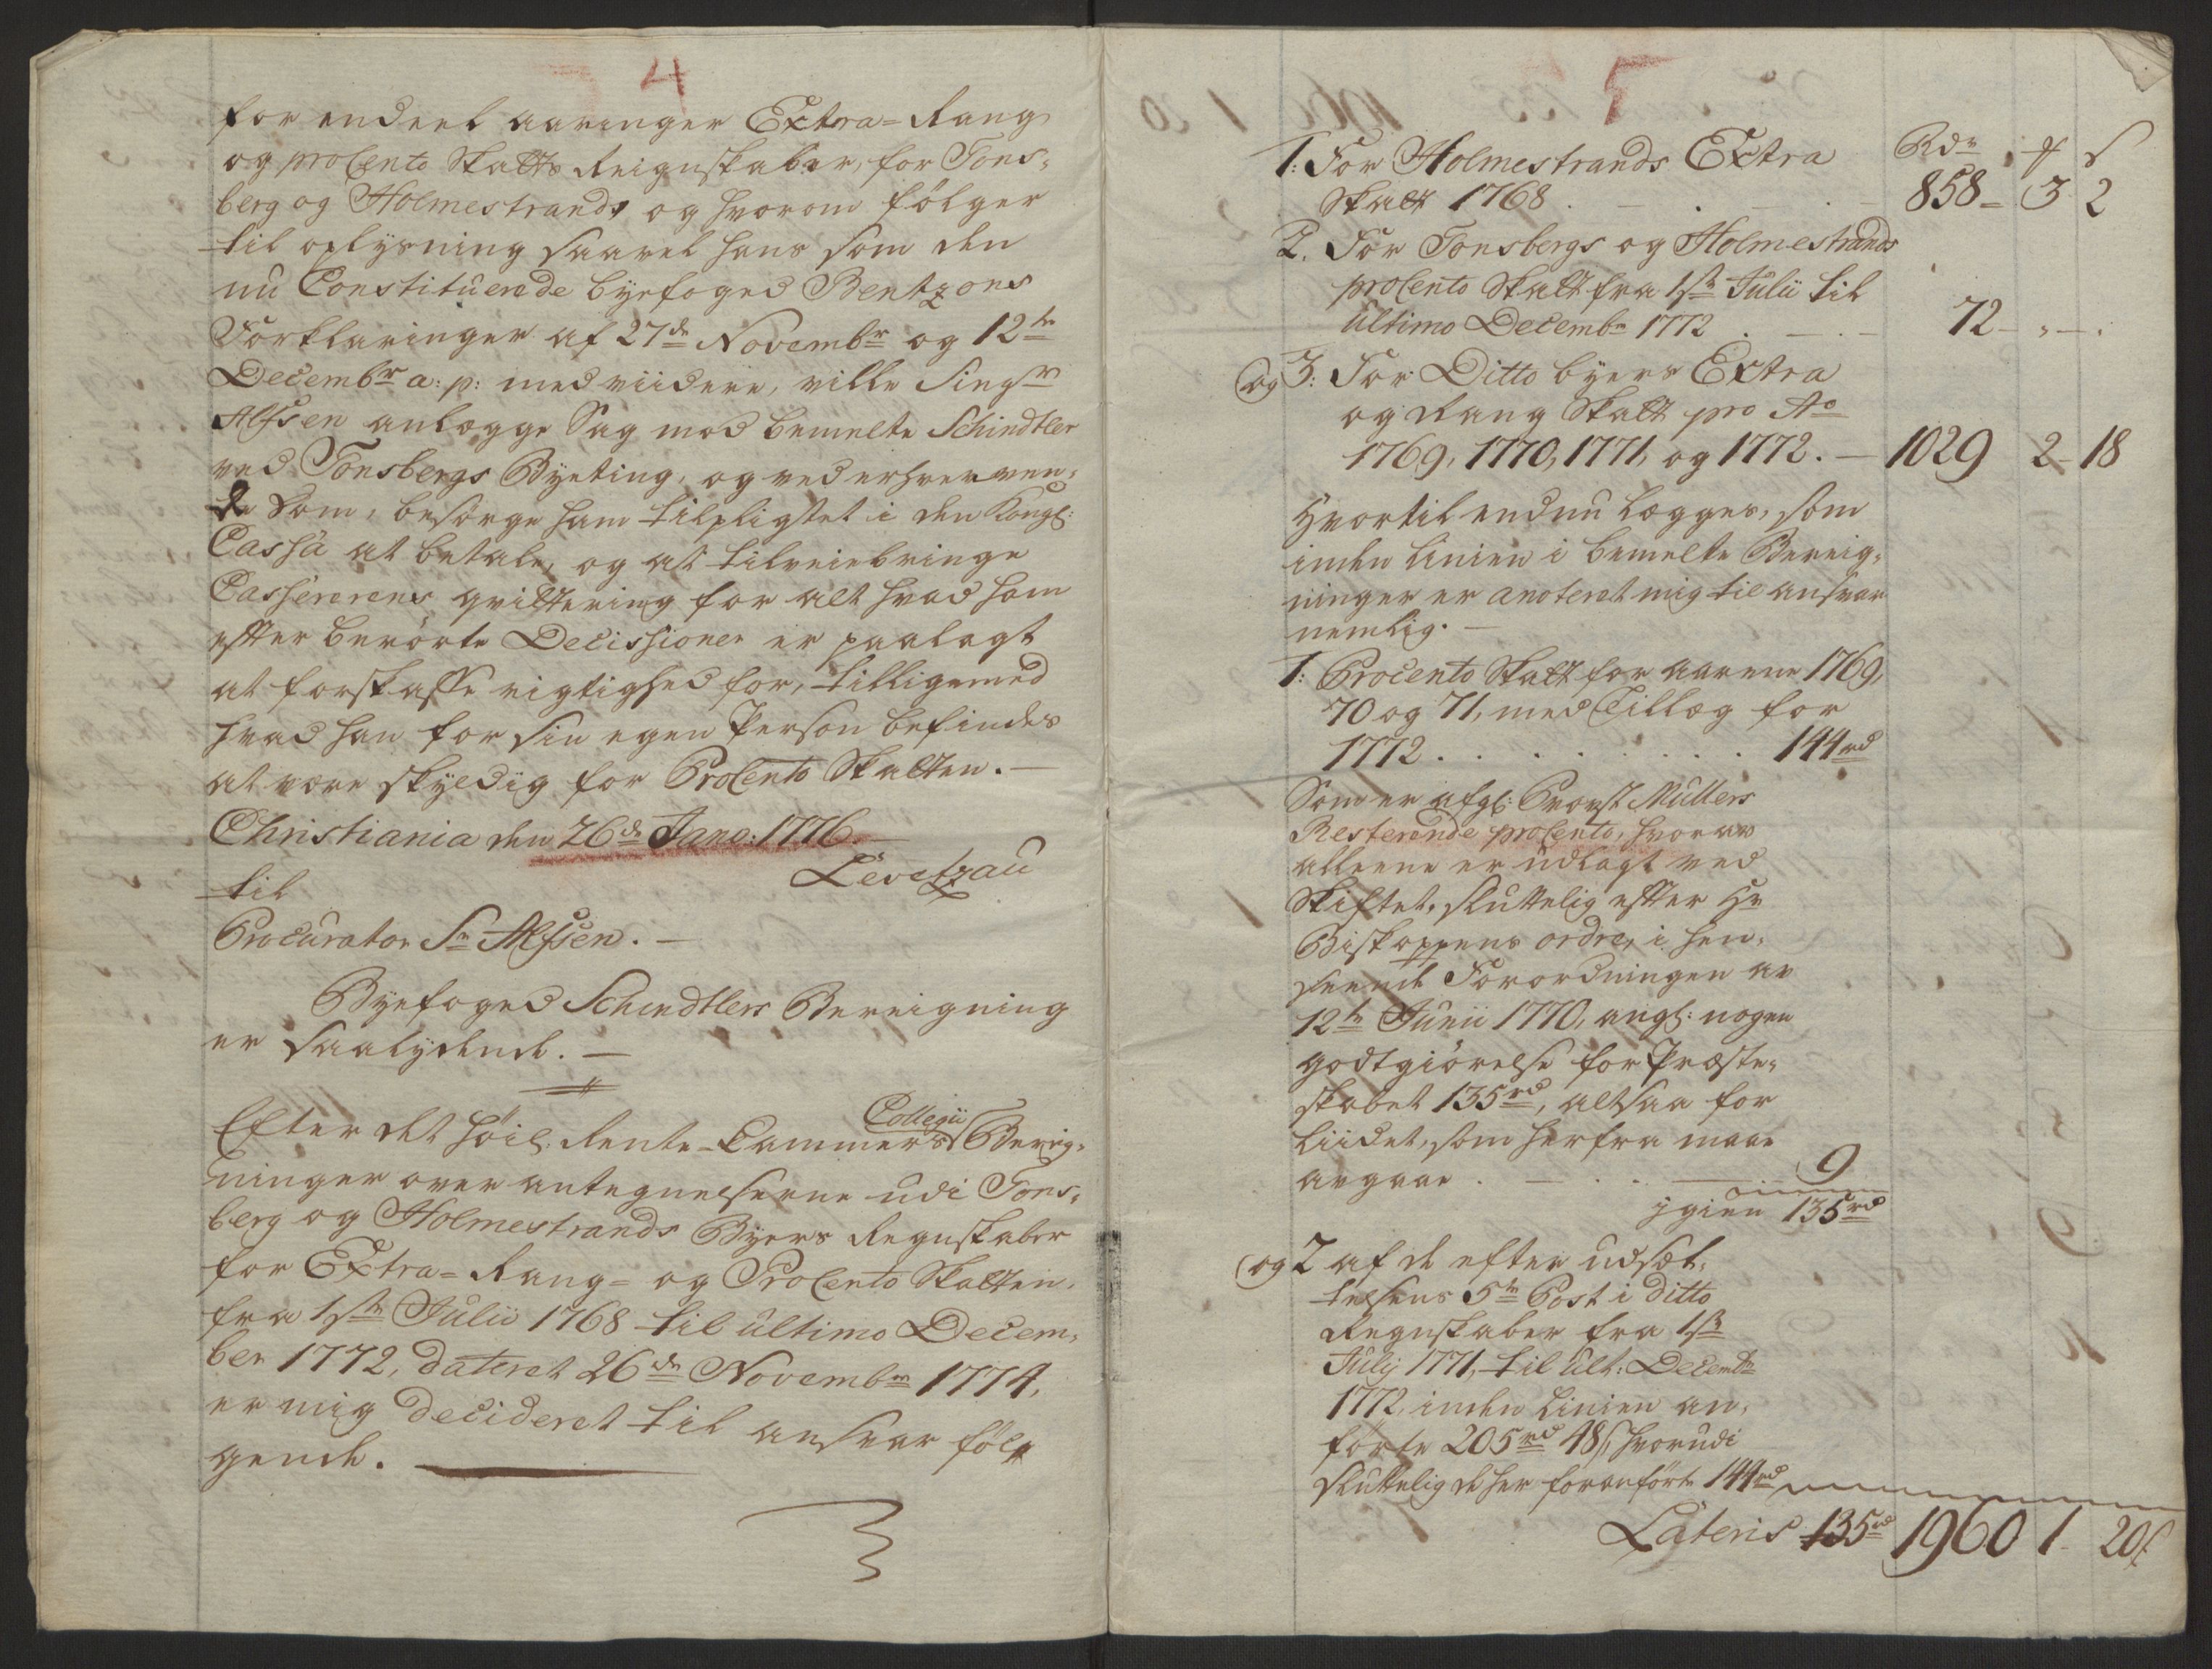 4
for endeel aaringer Extra-Rang
og proCento Skatts Reignskaber, for Tons-
berg og Holmestrands og hvorom følger
til oplysning saavel hans som den
nu Constituerede byefoged Bentzons
Forklaringer af 27de Novembr og 12te
Decembr a: p: med viidere, ville Singr
Alfsen anlægge Sag mod bemelte Schindtler
ved Tonsbergs Byeting, og ved erhverven-
de Dom, besørge ham tilpligtet i den Kongl:
Cassa at betale, og at tilveiebringe
Cassererens qvittering for alt hvad ham
efter berørte Decissioner er paalagt
at forskaffe rigtighed for, tilligemed
hvad han for sin egen Person befindes
at være skyldig for ProCento Skatten. —
Christiania den 26de Janv: 1776.
Levetzau
til
Procurator Sr Alfsen. —
Byefoged Schindtlers Bereigning
er saalydende. —
Efter det høil: Rente-Cammers Collegii Bereig-
ninger over antegnelserne udi Tons-
berg og Holmestrands Byers Regnskaber
for Extra- Rang- og ProCento Skatten,
fra 1ste Julii 1768 til ultimo Decem-
ber 1772, dateret 26de Novembr 1774,
er mig decideret til ansvar føl-
gende. —
5
Rdr ȹ s
1: For Holmestrands Extra
Skatt 1768 . — . — 858 - 3 2
2. For Tonsbergs og Holmestrands
proCento Skatt fra 1ste Julii til
ultimo Decembr 1772 . — . — 72 - „ - .
og 3: For Ditto byers Extra
og Rang Skatt pro Ao
1769, 1770, 1771, og 1772. — 1029 2 - 18
Hvortil endnu lægges, som
inden Linien i bemelte Bereig-
ninger er anoteret mig til ansvar
nemlig. —
1: Procento Skatt for aarene 1769,
70 og 71, med Tillæg for
1772 . . . . . . . 144rd
Som er afgl: Provst Müllers
Resterende proCento, hvorav
alleene er udlagt ved
Skiftet, sluttelig efter Hr
Biskoppens ordre, i hen-
seende Forordningen av
12te Junii 1770, angl: nogen
godtgiørelse for Præste-
skabet 135rd, altsaa for
liidet, som herfra maae
avgaae . — . . — 9
igien 135rd
og 2 af de efter udsæt-
telsens 5te Post i ditto
Regnskaber fra 1ste
Julij 1771, til ult: Decembr
1772, inden Linien an-
førte 205rd 48s, hvorudi
sluttelig de her foranførte 144rd
Lateris 135rd 1960 1 - 20s